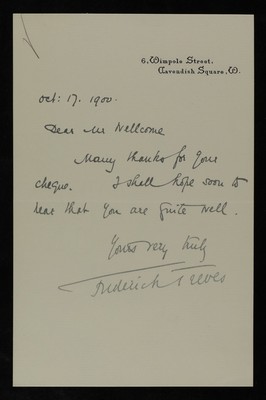 6, Wimpole Street,
Cavendish Square, W.
Oct: 17. 1900.
Dear Mr Wellcome
Many thanks for your
cheque. I shall hope soon to
hear that you are quite well.
Yours very truly
Frederick Treves